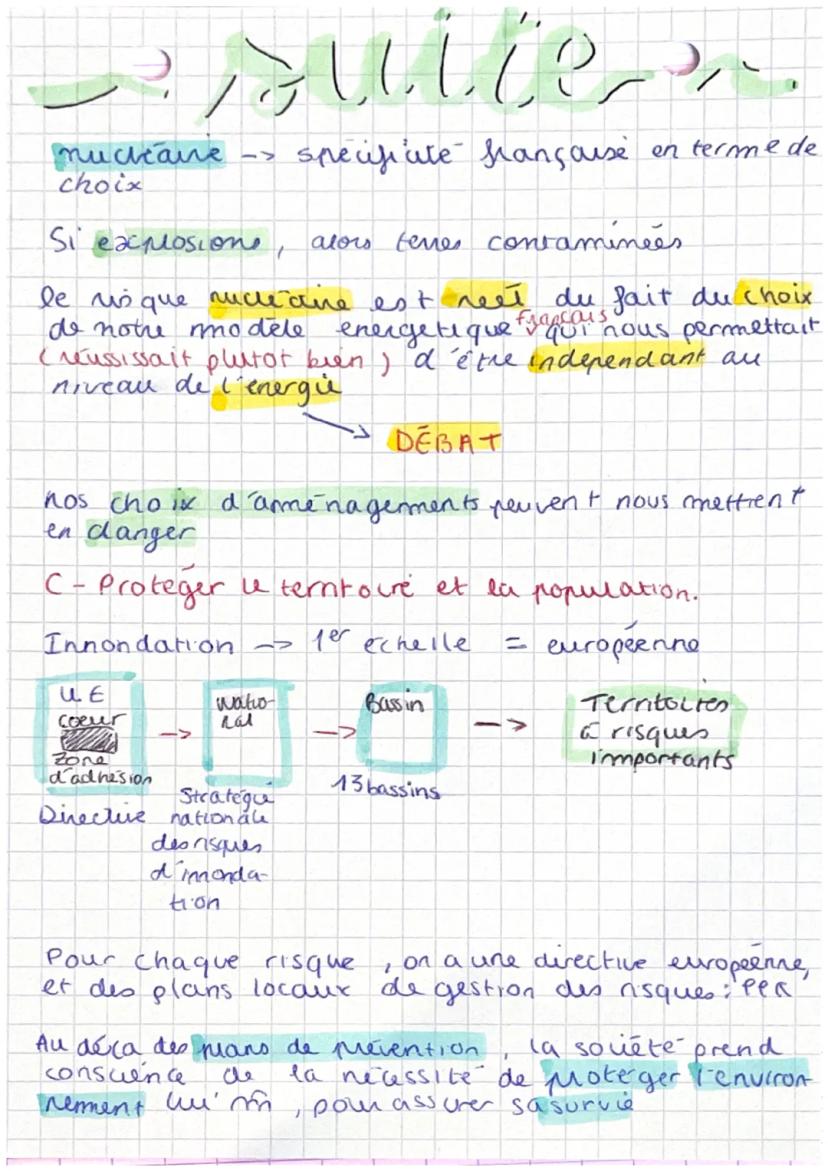 suite
nucléaire -> spécificité française en terme de
choix
Si explosions, alors terres contaminées
le risque nucléaire est réel du fait du choix
de notre modèle énergétique français qui nous permettait
(réussissait plutot bien) d'être indépendant au
niveau de l'énergie
DÉBAT
nos choix d'aménagements peuvent nous mettrent
en danger
C - Protéger le territoire et la population.
Innondation -> 1er echelle = européenne
UE
coeur
zone
d'adhésion
Directive
->
Natio-
nal
Stratégie
nationale
des risques
d'innonda-
tion
->
Bassin
13 bassins
->
Territoires
à risques
importants
Pour chaque risque, on a une directive européenne,
et des plans locaux de gestion des risques : PPR
Au déca des plans de prévention, la société prend
conscience de la nécessité de protéger l'environ
nement lui m̂, pour assurer sa survie